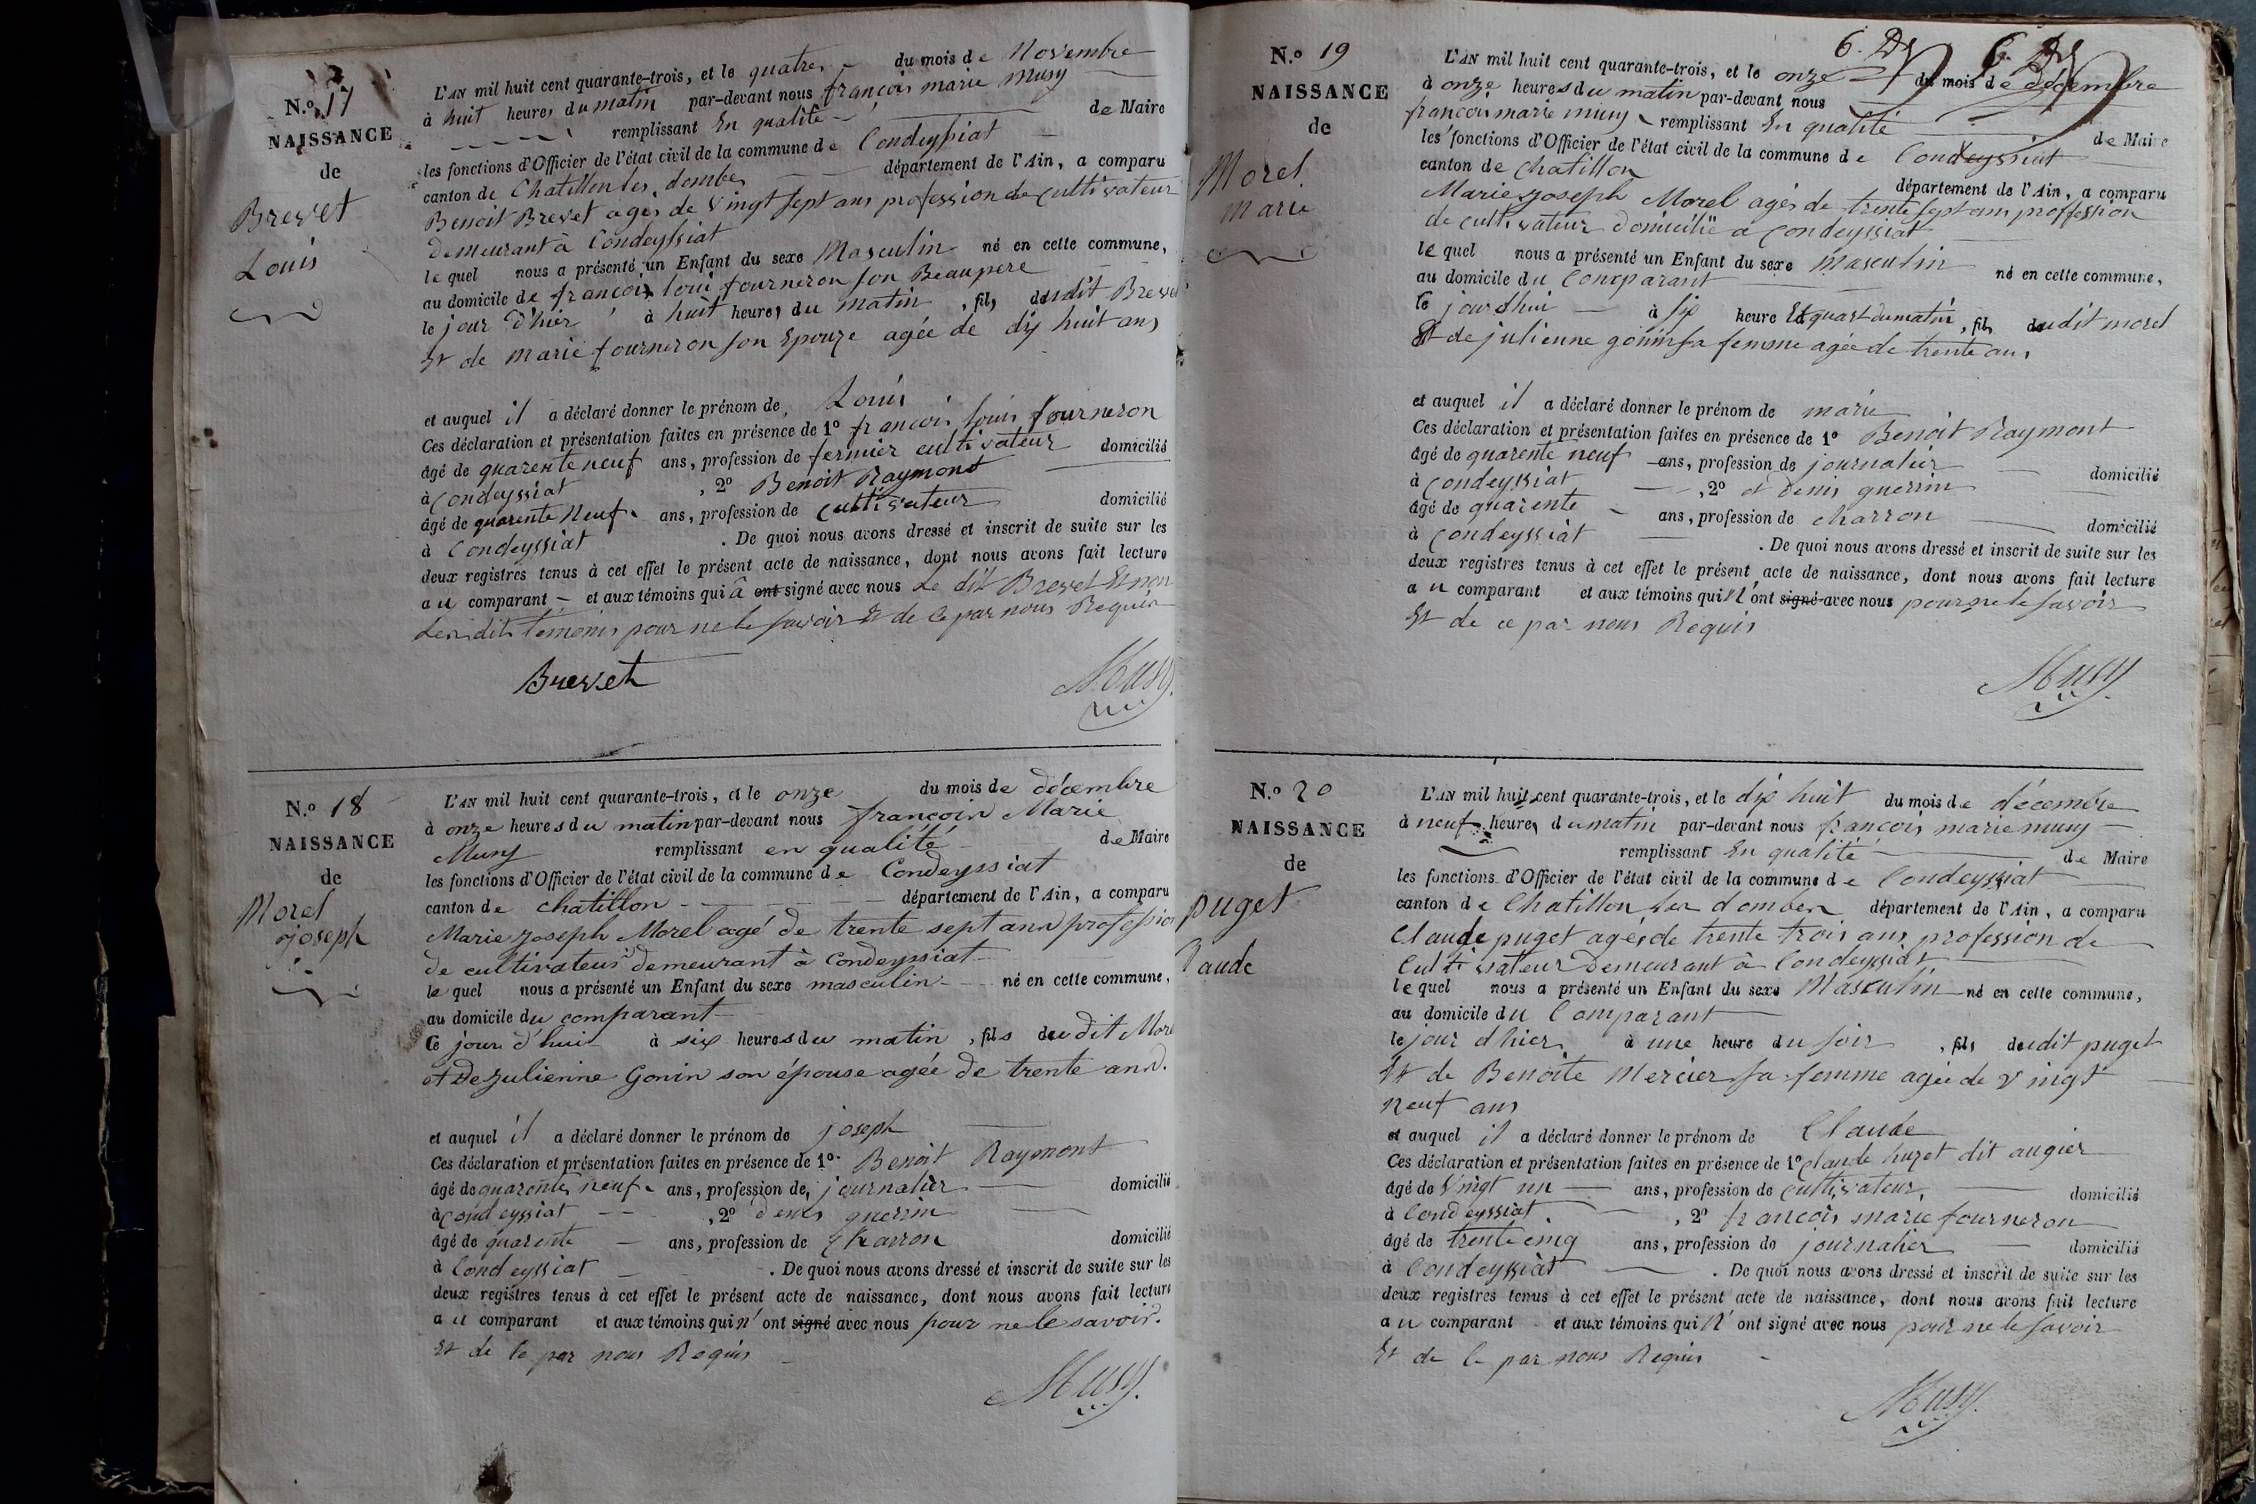 N.o 17
NAISSANCE
de
Brevet
Louis
L'AN mil huit cent quarante-trois, et le quatre du mois de Novembre
à huit heures du matin par-devant nous françois marie Musy
remplissant En qualité de Maire
les fonctions d'Officier de l'état civil de la commune de Condeyssiat
canton de Chatillon les dombes département de l'Ain, a comparu
Benoit Brevet agés de vingt sept ans profession de cultivateur
demeurant à Condeyssiat
le quel nous a présenté un Enfant du sexe Masculin né en cette commune,
au domicile de françois loui fourneron son Beaupere
le jour d'hier à huit heures du matin, fils dudit Brevet
Et de marie fourneron son Epouze agée de dix huit ans
et auquel il a déclaré donner le prénom de Louis
Ces déclaration et présentation faites en présence de 1o françois louis fourneron
âgé de quarente neuf ans, profession de fermier cultivateur domicilié
à Condeyssiat, 2o Benoit Raymond
âgé de quarente Neuf ans, profession de cultivateur domicilié
à Condeyssiat. De quoi nous avons dressé et inscrit de suite sur les
deux registres tenus à cet effet le présent acte de naissance, dont nous avons fait lecture
au comparant et aux témoins qui â ont signé avec nous Le dit Brevet Et non
Les dits temoins pour ne le savoir Et de ce par nous Requis
Brevet
Musy
N.o 18
NAISSANCE
de
Morel
joseph
L'AN mil huit cent quarante-trois, et le onze du mois de décembre
à onze heures du matin par-devant nous françois Marie
Musy remplissant en qualité de Maire
les fonctions d'Officier de l'état civil de la commune de Condeyssiat
canton de chatillon département de l'Ain, a comparu
Marie joseph Morel agé de trente sept ans profession
de cultivateur demeurant à Condeyssiat
le quel nous a présenté un Enfant du sexe masculin né en cette commune,
au domicile du comparant
Ce jour d'hui à six heures du matin, fils dudit Morel
et De julienne Gonin son épouse agée de trente ans.
et auquel il a déclaré donner le prénom de joseph
Ces déclaration et présentation faites en présence de 1o. Benoit Raymont
âgé de quarente neuf ans, profession de journalier domicilié
à Condeyssiat, 2o denis guerin
âgé de quarente ans, profession de Charron domicilié
à Condeyssiat. De quoi nous avons dressé et inscrit de suite sur les
deux registres tenus à cet effet le présent acte de naissance, dont nous avons fait lecture
au comparant et aux témoins qui n'ont signé avec nous pour ne le savoir.
Et de ce par nous Requis
Musy
N.o 19
NAISSANCE
de
Morel
marie
L'AN mil huit cent quarante-trois, et le onze du mois de décembre
à onze heures du matin par-devant nous
françois marie musy remplissant En qualité de Maire
les fonctions d'Officier de l'état civil de la commune de Condeyssiat
canton de chatillon département de l'Ain, a comparu
Marie joseph Morel agés de trente sept ans proffession
de cultivateur domicilié à Condeyssiat
le quel nous a présenté un Enfant du sexe masculin né en cette commune,
au domicile du Comparant
Ce jourdhui à six heure Et quart du matin, fils dudit morel
Et de julienne gonin sa femme agée de trente ans
et auquel il a déclaré donner le prénom de marie
Ces déclaration et présentation faites en présence de 1o Benoit Raymont
âgé de quarente neuf ans, profession de journalier domicilié
à Condeyssiat, 2o et denis guerrin
âgé de quarente ans, profession de charron domicilié
à Condeyssiat. De quoi nous avons dressé et inscrit de suite sur les
deux registres tenus à cet effet le présent acte de naissance, dont nous avons fait lecture
au comparant et aux témoins qui n'ont signé avec nous pour ne le savoir
Et de ce par nous Requis
Musy
N.o 20
NAISSANCE
de
puget
Claude
L'AN mil huit cent quarante-trois, et le dix huit du mois de décembre
à neuf heures du matin par-devant nous françois marie musy
remplissant En qualité de Maire
les fonctions d'Officier de l'état civil de la commune de Condeyssiat
canton de Chatillon les dombes département de l'Ain, a comparu
Claude puget agés de trente trois ans profession de
Cultivateur Demeurant à Condeyssiat
le quel nous a présenté un Enfant du sexe Masculin né en cette commune,
au domicile du Comparant
le jour d hier à une heure du soir, fils dudit puget
Et de Benoite Mercier sa femme agée de vingt
neuf ans
et auquel il a déclaré donner le prénom de Claude
Ces déclaration et présentation faites en présence de 1o claude dit augier
âgé de Vingt un ans, profession de cultivateur domicilié
à Condeyssiat, 2o françois marie fourneron
âgé de trente cinq ans, profession de journalier domicilié
à Condeyssiat. De quoi nous avons dressé et inscrit de suite sur les
deux registres tenus à cet effet le présent acte de naissance, dont nous avons fait lecture
au comparant et aux témoins qui n'ont signé avec nous pour ne le savoir
Et de ce par nous Requis
Musy